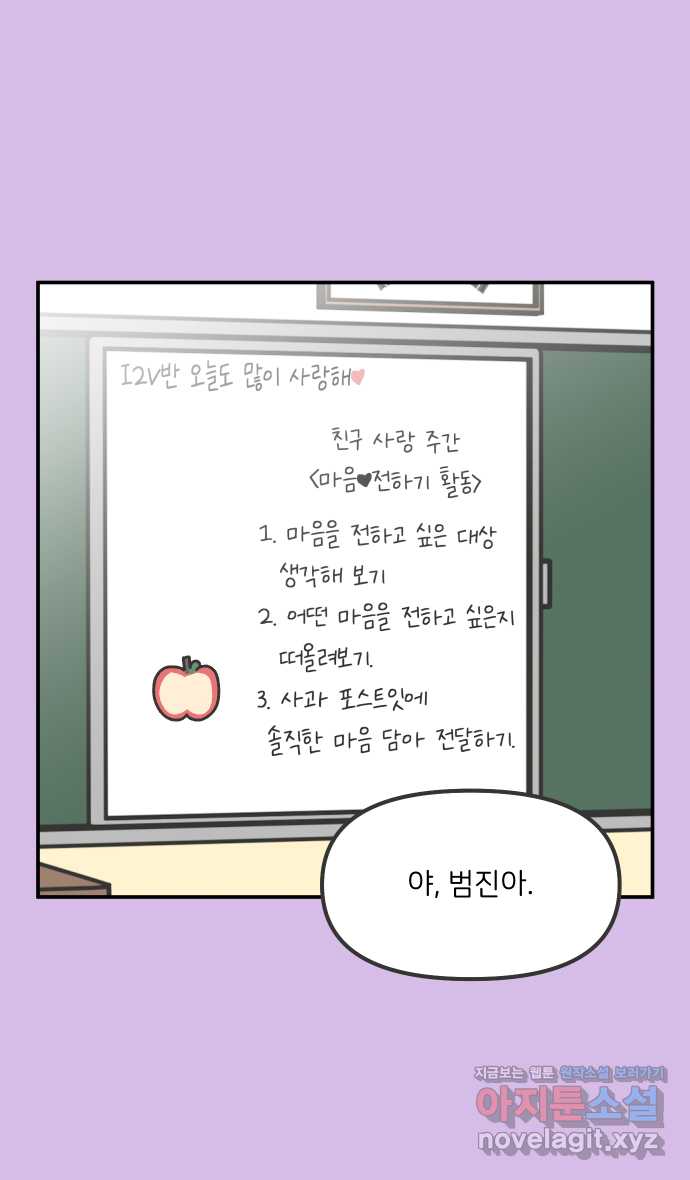 I2V반 오늘도 많이 사랑해♥
친구 사랑 주간
<마음♥전하기 활동>
1. 마음을 전하고 싶은 대상
생각해 보기
2. 어떤 마음을 전하고 싶은지
떠올려보기.
3. 사과 포스트잇에
솔직한 마음 담아 전달하기.
야, 범진아.
지금보는 웹툰 원작소설 보러가기
아지툰소설
novelagit.xyz